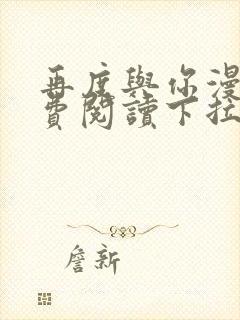 再度與你漫
費閱讀下拉
詹新